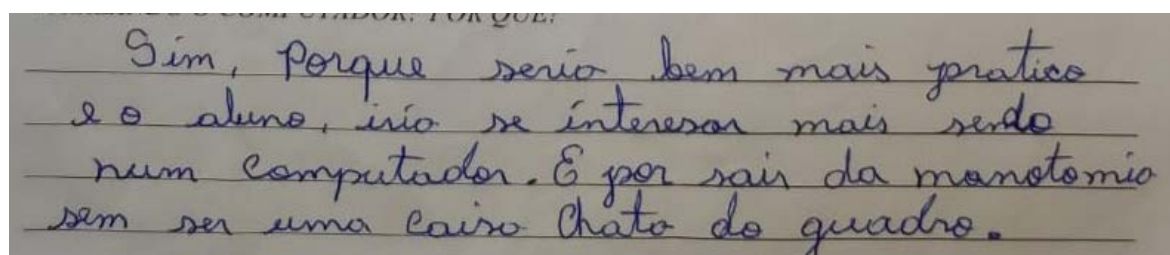 UTILIZANDO O COMPUTADOR? POR QUE?
Sim, Porque seria bem mais pratico
e o aluno, iria se interesar mais sendo
num computador. E por sair da monotomia
sem ser uma coisa chata do quadro.